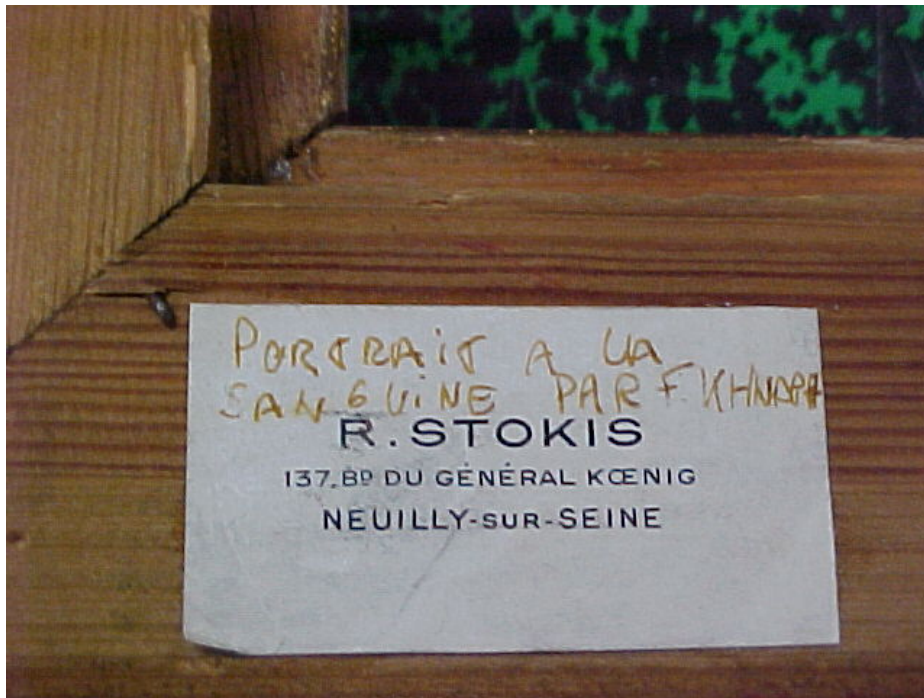 PORTRAIT A LA
SANGUINE PAR F. KHNOPFF
R. STOKIS
137, BD DU GÉNÉRAL KŒNIG
NEUILLY-SUR-SEINE